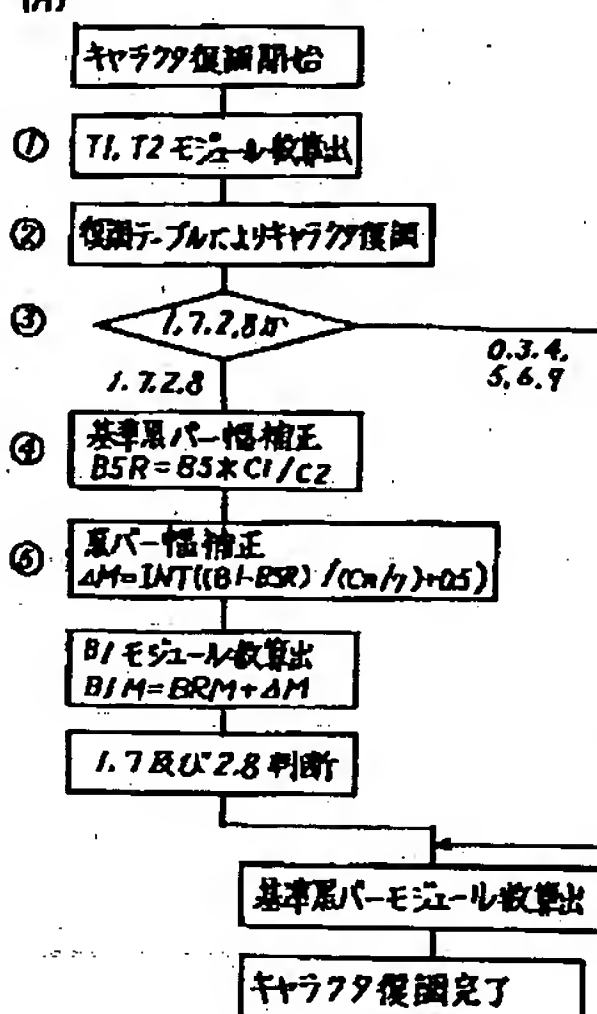 (A)
キャラクタ復調開始
① T1, T2 モジュール数算出
② 復調テーブルによりキャラクタ復調
③ 1,7,2,8か
0.3.4,
5,6.9
1.7.2.8
④ 基準黒バー幅補正
BSR=BS*C1/C2
⑤ 黒バー幅補正
ΔM=INT((B1-BSR)/(Cn/7)+0.5)
B1モジュール数算出
B1M=BRM+ΔM
1.7及び2.8判断
基準黒バーモジュール数算出
キャラクタ復調完了